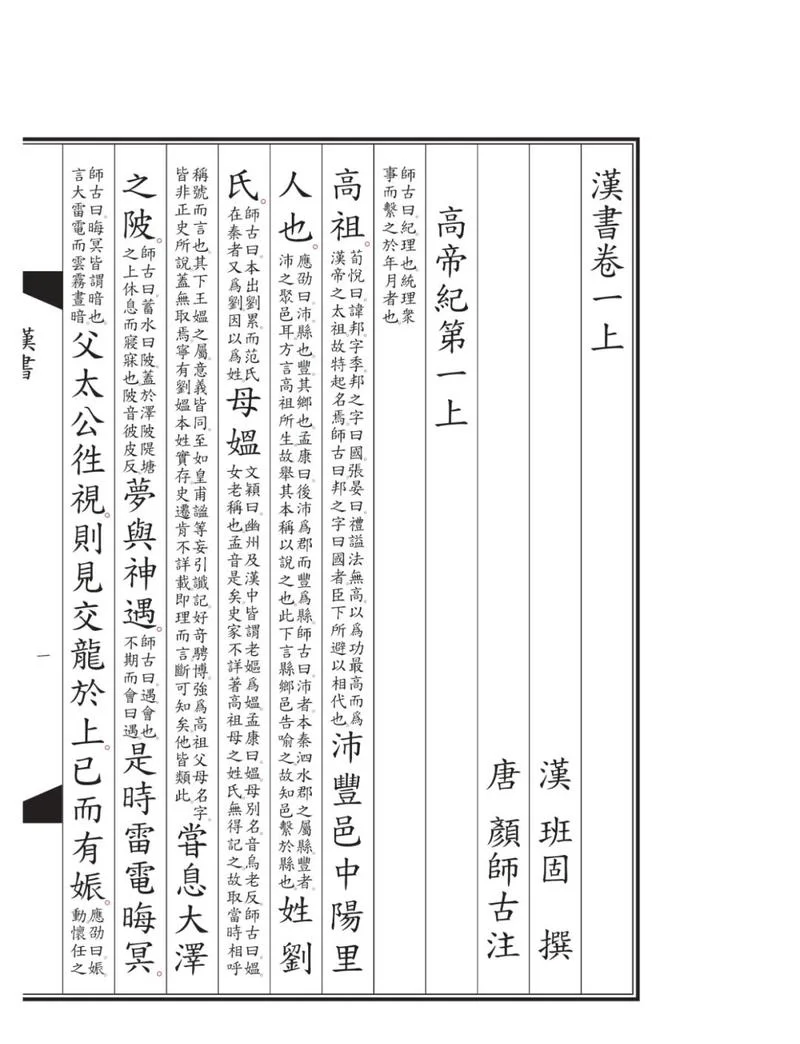 漢書卷一上
漢 班固 撰
唐 顏師古 注
高帝紀第一上
師古曰。紀。理也。統理衆事而繫之於年月者也。
高祖。荀悅曰。諱邦。字季。邦之字曰國。張晏曰。禮謚法無高。以爲功最高而爲漢帝之太祖。故特起名焉。師古曰。邦之字曰國者。臣下所避以相代也。沛豐邑中陽里
人也。應劭曰。沛。縣也。豐。其鄉也。孟康曰。後沛爲郡而豐爲縣。師古曰。沛者。本秦泗水郡之屬縣。豐者。沛之聚邑耳。方言高祖所生。故舉其本稱以說之也。此下言縣鄉邑告喻之。故知邑繫於縣也。姓劉
氏。師古曰。本出劉累。而范氏在秦者又爲劉。因以爲姓。母媼文穎曰。幽州及漢中皆謂老嫗爲媼。孟康曰。媼。母別名。音烏老反。師古曰。媼。女老稱也。孟音是矣。史家不詳著高祖母之姓氏。無得記之。故取當時相呼
稱號而言也。其下王媼之屬。意義皆同。至如皇甫謐等妄引讖記。好奇騁博。強爲高祖父母名字。皆非正史所說。蓋無取焉。寧有劉媼本姓實存。史遷肯不詳載。即理而言。斷可知矣。他皆類此。甞息大澤
之陂。師古曰。蓄水曰陂。蓋於澤陂隄塘之上休息而寢寐也。陂音彼皮反。夢與神遇。師古曰。遇。會也。不期而會曰遇。是時雷電晦冥。
師古曰。晦冥皆謂暗也。言大雷電而雲霧晝暗。父太公往視。則見交龍於上。已而有娠。應劭曰。娠。動懷任之
漢書
一